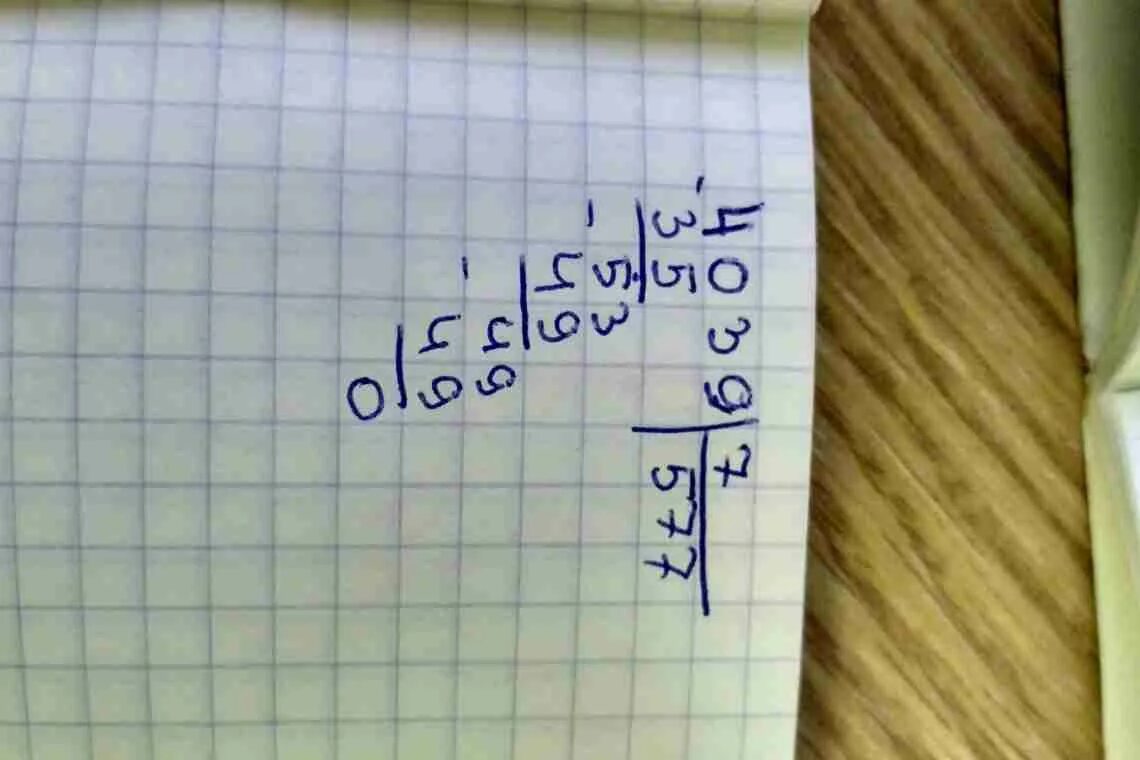 4039|7
-35 |577
-53
49
-49
49
0